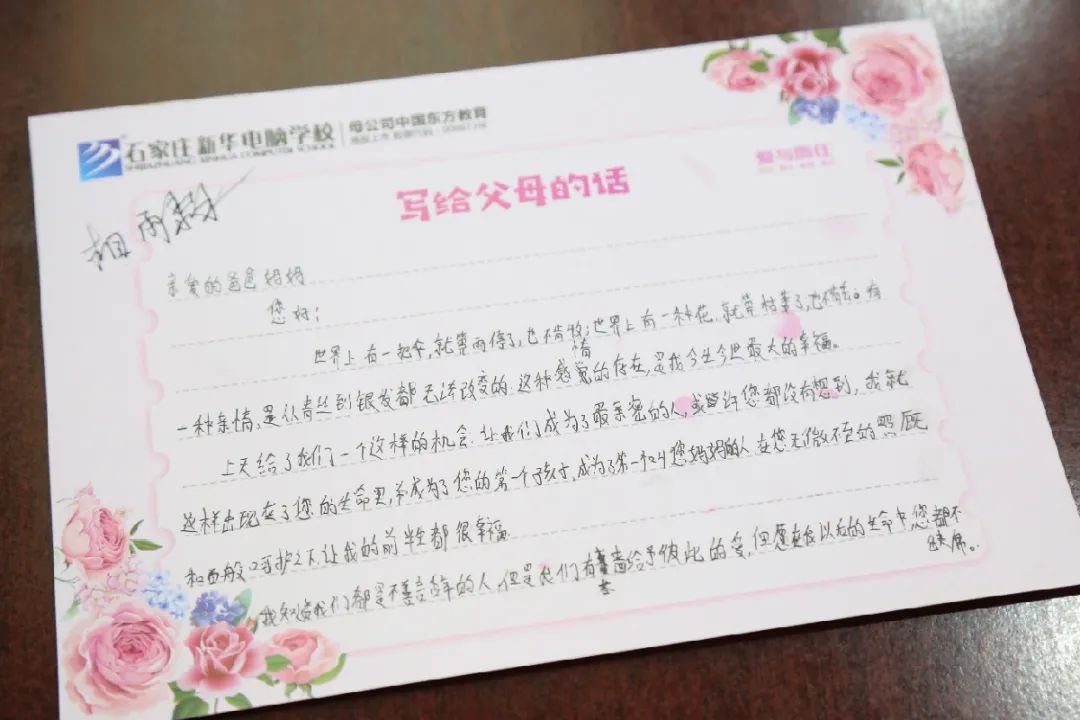 石家庄新华电脑学校 母公司中国东方教育
SHIJIAZHUANG XINHUA COMPUTER SCHOOL
爱与责任
写给父母的话
雨
亲爱的爸爸妈妈
您好:
世界上有一把伞,就算雨停了,也不肯收;世界上有一种花,就算枯萎了,也不肯
一种亲情,是从青丝到银发都无法改变的.这种感情的存在,是我今生今世最大的幸福。
上天给了我们一个这样的机会.让我们成为了最亲密的人,或许您都没有想到,我就
这样出现在了您的生命里,并成为了您的第一个孩子,成为了第一个叫您妈妈的人在您无微不至的照顾
和百般呵护之下.让我的前半生都很幸福.
我知道我们都是不善言辞的人,但是我们有着给予彼此的爱,但愿在以后的生命中您都不
缺席。